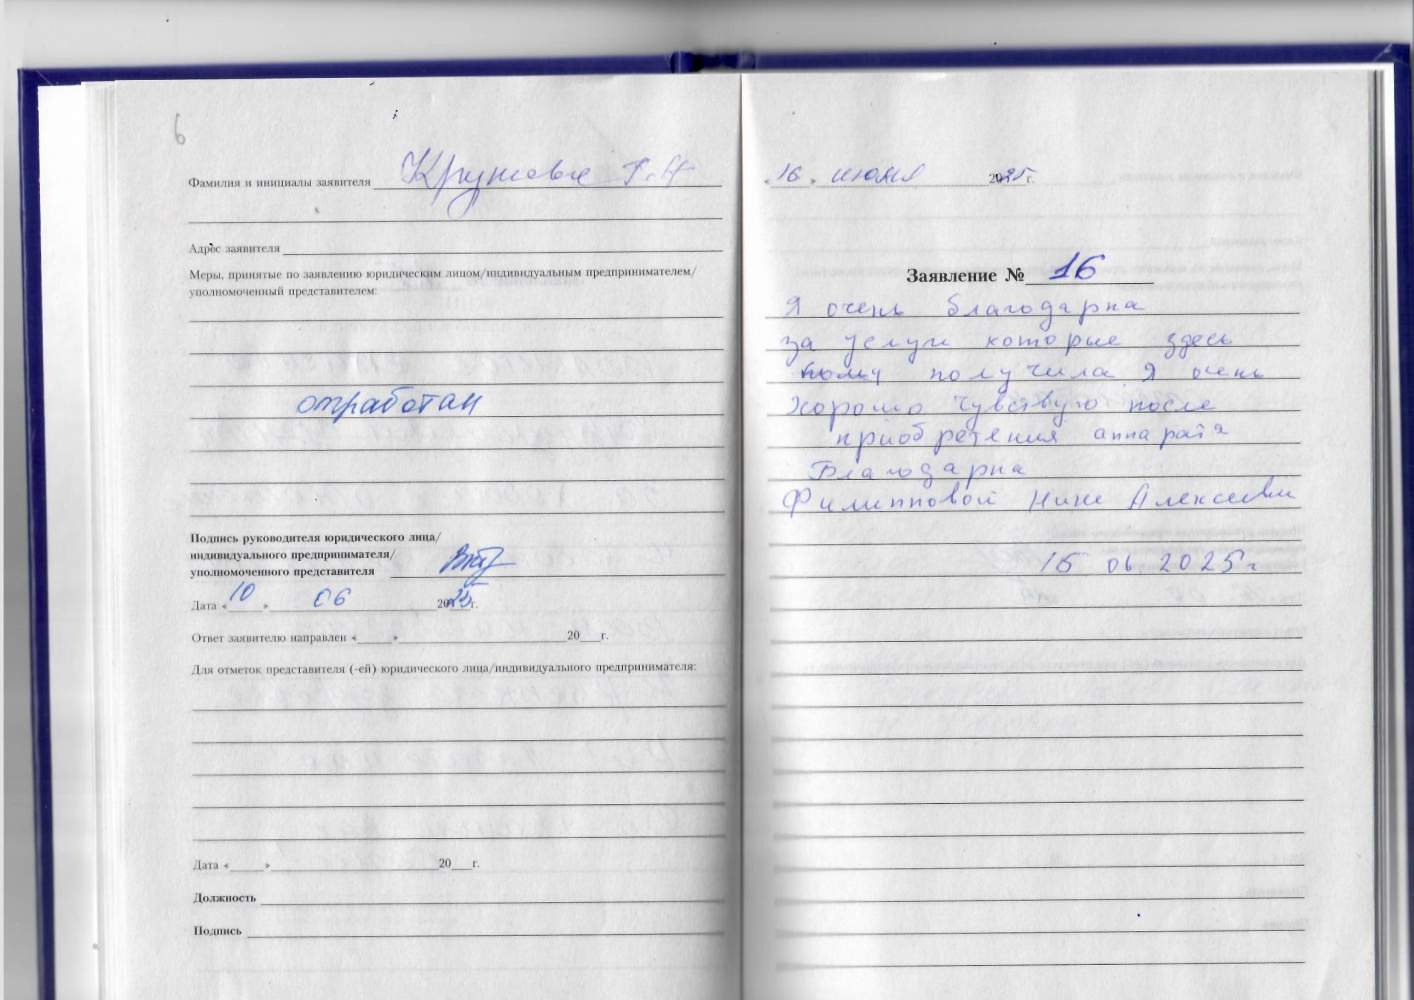 6
Фамилия и инициалы заявителя
Адрес заявителя
Меры, принятые по заявлению юридическим лицом/индивидуальным предпринимателем/
уполномоченный представителем:
отработан
Подпись руководителя юридического лица/
индивидуального предпринимателя/
уполномоченного представителя
Дата «10» 06 2025г.
Ответ заявителю направлен «____» 20___г.
Для отметок представителя (-ей) юридического лица/индивидуального предпринимателя:
Дата «____» 20___г.
Должность
Подпись
16. июня 2025г.
Заявление № 16
Я очень благодарна
за услуги которые здесь
получила. Я очень
хорошо чувствую после
приобретения аппарата
Благодарна
Филипповой Нине Алексеевне
16 06. 2025г